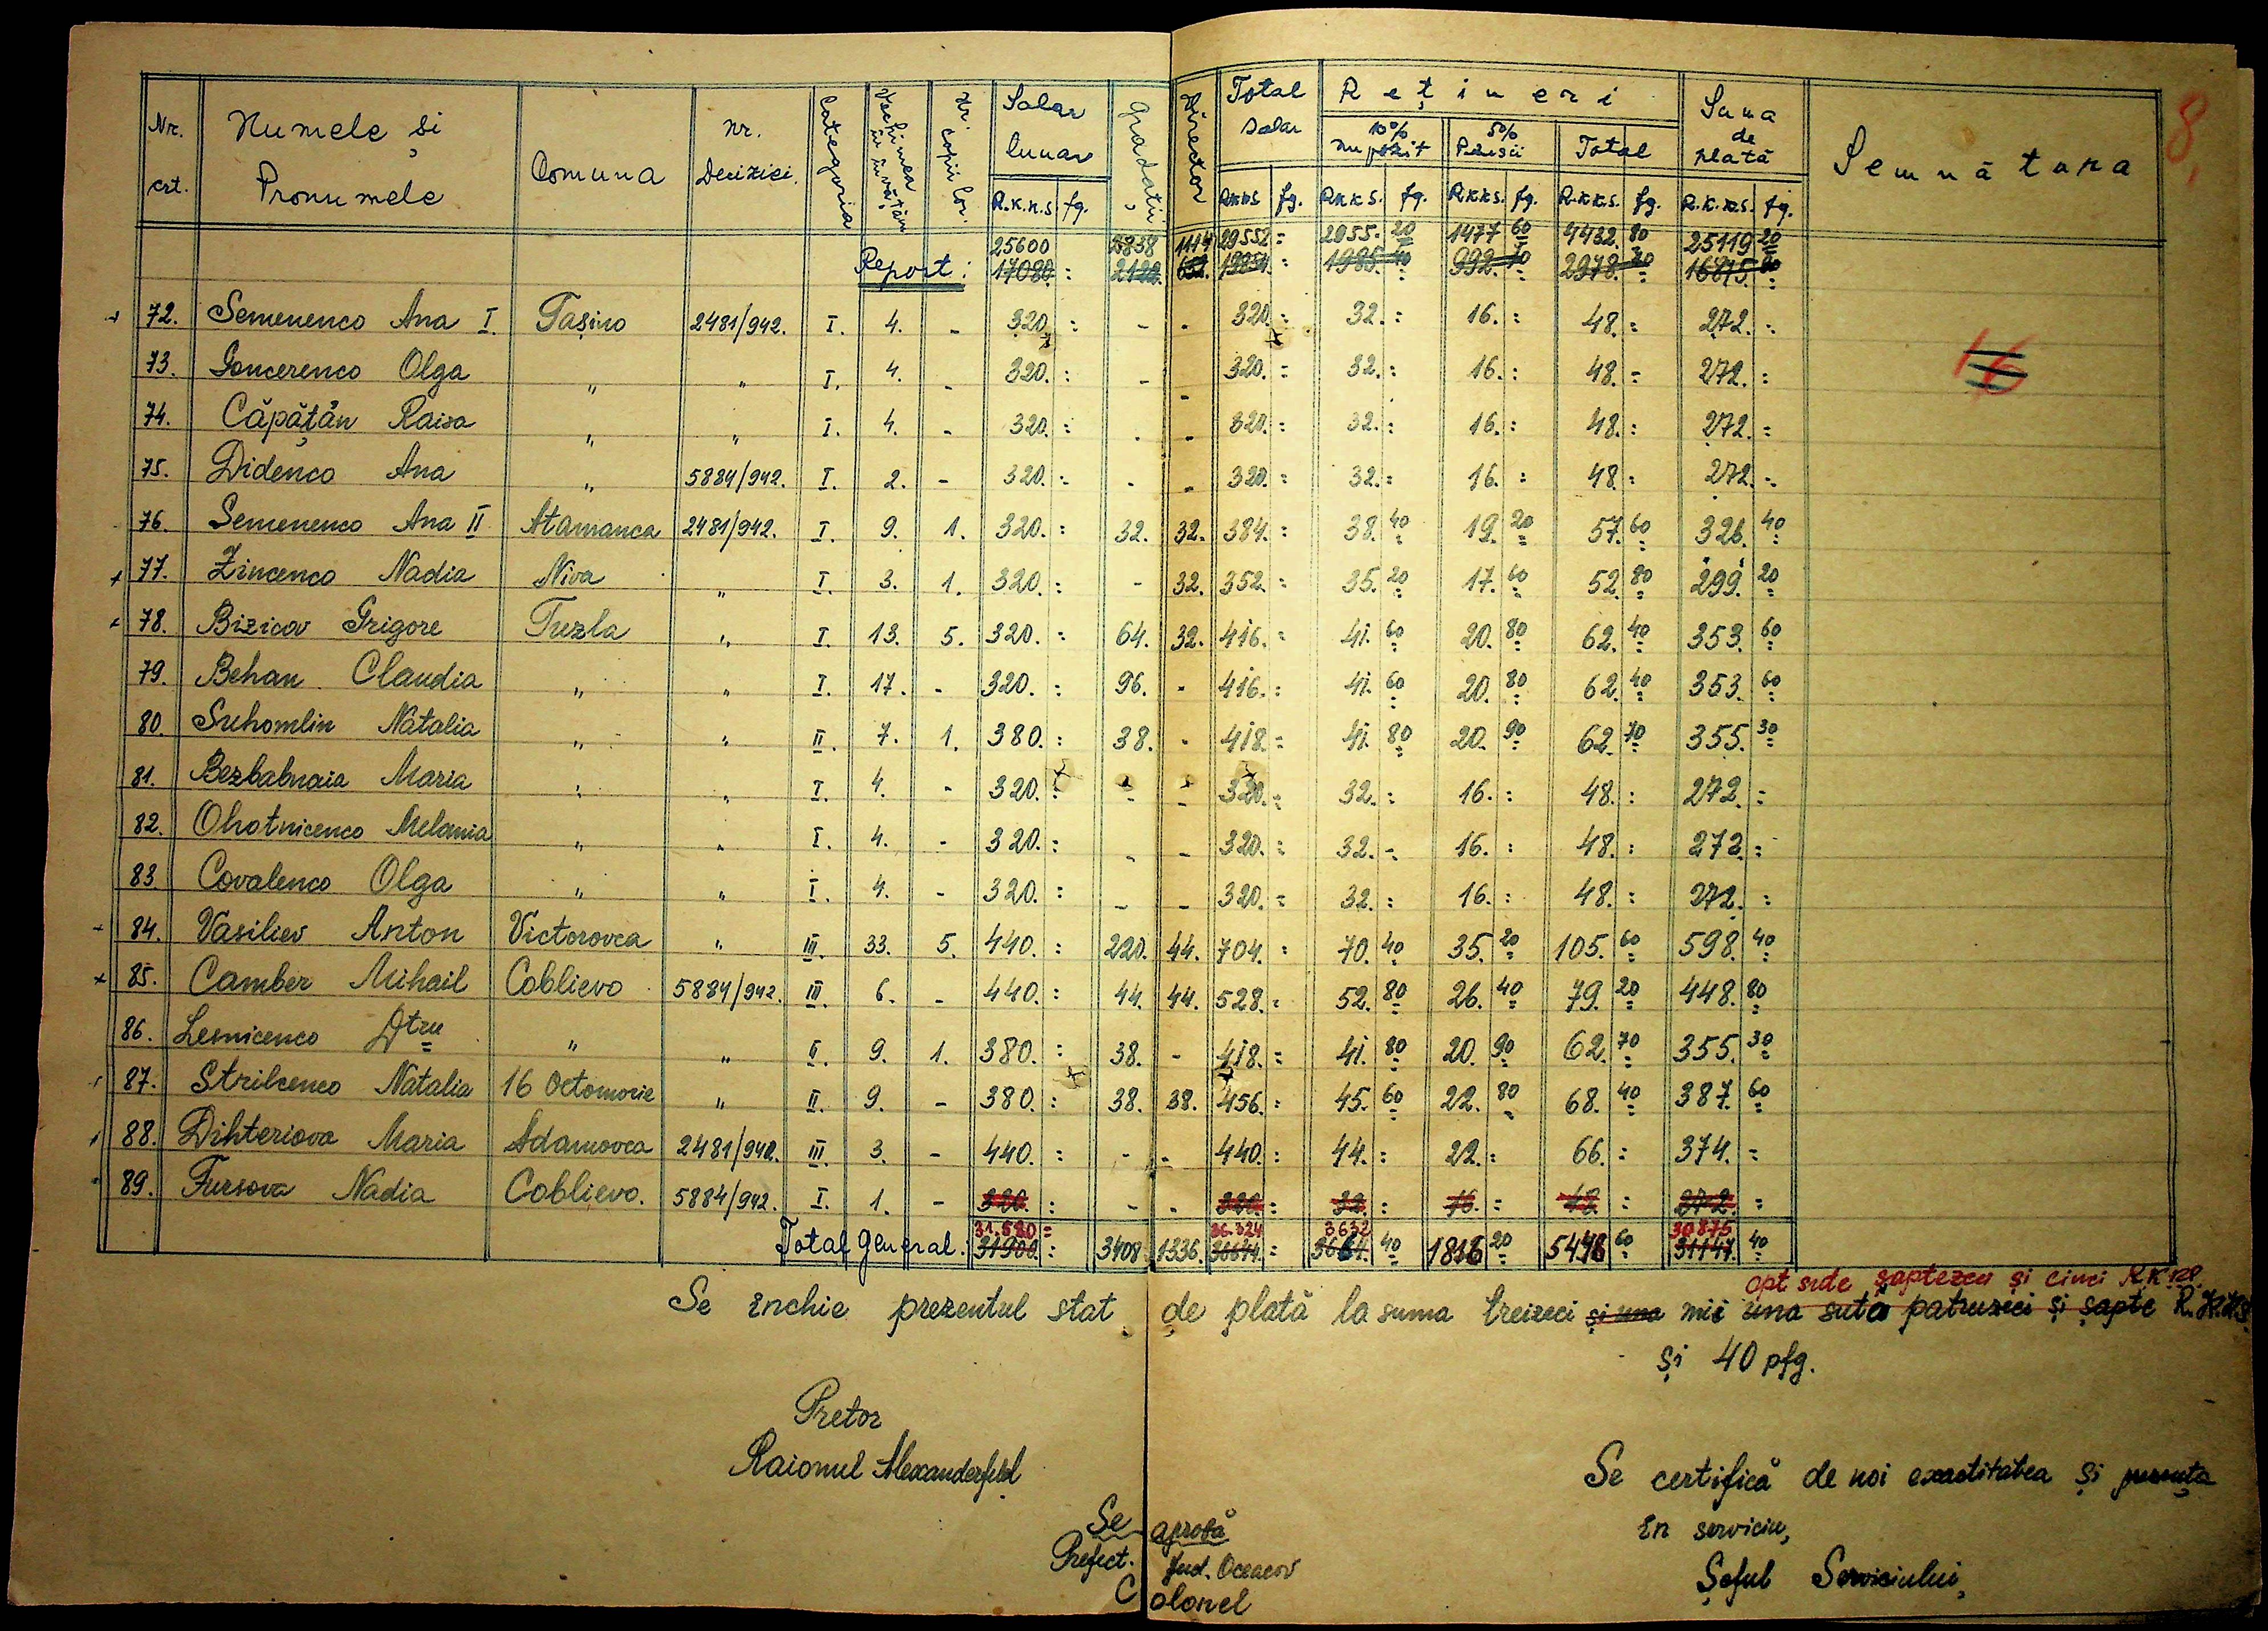 8,
Nr. crt. Numele și Pronumele Comuna nr. Deciziei. Categoria Vechimea în învățăm Nr. copiilor. Salar lunar Gradații Director Total salar Rețineri Suma de plată Semnătura
10% impozit 5% Pensii Total
R.K.K.S. fg. RKKS fg. RKKS. fg. R.K.K.S. fg. R.K.K.S. fg. R.K.K.S. fg.
25600 2838 1114 29552 = 2955. 20 1477 60 4432. 80 25119 20
Report: 17080 : 2122. 652. 19854. : 1985. 40 992. 70 2978. 10 16875. 90
72. Semenenco Ana I. Tașino 2481/942. I. 4. - 320. : - - 320. : 32. : 16. : 48. : 272. :
73. Goncerenco Olga " " I. 4. - 320. : - - 320. : 32. : 16. : 48. = 272. :
16
74. Căpățân Raisa " " I. 4. - 320. : - - 320. : 32. : 16. : 48. : 272. =
75. Didenco Ana " 5884/942. I. 2. - 320. : - - 320. : 32. : 16. : 48. : 272. :
76. Semenenco Ana II Atamanca 2481/942. I. 9. 1. 320. : 32. 32. 384. : 38. 40 19. 20 57. 60 326. 40
77. Zincenco Nadia Niva " I. 3. 1. 320. : - 32. 352. : 35. 20 17. 60 52. 80 299. 20
78. Bizicov Grigore Tuzla " I. 13. 5. 320. : 64. 32. 416. : 41. 60 20. 80 62. 40 353. 60
79. Behan Claudia " " I. 17. - 320. : 96. - 416. : 41. 60 20. 80 62. 40 353. 60
80. Suhomlin Natalia " " II. 7. 1. 380. : 38. - 418. = 41. 80 20. 90 62. 70 355. 30
81. Bezbabnaia Maria " " I. 4. - 320. : - - 320. : 32. : 16. : 48. : 272. :
82. Ohotnicenco Melania " " I. 4. - 320. : - - 320. : 32. : 16. : 48. : 272. :
83. Covalenco Olga " " I. 4. - 320. : - - 320. = 32. : 16. : 48. : 272. :
84. Vasiliev Anton Victorovca " III. 33. 5. 440. : 220. 44. 704. : 70. 40 35. 20 105. 60 598. 40
85. Camber Mihail Coblievo 5884/942. III. 6. - 440. : 44. 44. 528. : 52. 80 26. 40 79. 20 448. 80
86. Lesnicenco Dtru " " II. 9. 1. 380. : 38. - 418. = 41. 80 20. 90 62. 70 355. 30
87. Strilcenco Natalia 16 Octomvrie " II. 9. - 380. : 38. 38. 456. : 45. 60 22. 80 68. 40 387. 60
88. Dihteriova Maria Adamovca 2481/942. III. 3. - 440. : - - 440. : 44. : 22. : 66. : 374. =
89. Fursova Nadia Coblievo. 5884/942. I. 1. - 320. : - - 320. : 32. : 16. = 48. : 272. :
31.580 = 36.324 3632 30875
Total general: 31900. : 3408 1336. 36644. : 3664. 40 1816 20 5448 60 31147. 40
opt sute șaptezeci și cinci R.K.K.S.
Se închie prezentul stat de plată la suma treizeci și una mii una sută patruzeci și șapte R.K.K.S.
și 40 pfg.
Pretor
Raionul Alexanderfeld
Se certifică de noi exactitatea și prezența
în serviciu,
Șeful Serviciului,
Se aprobă
Prefect. Jud. Oceacov
Colonel